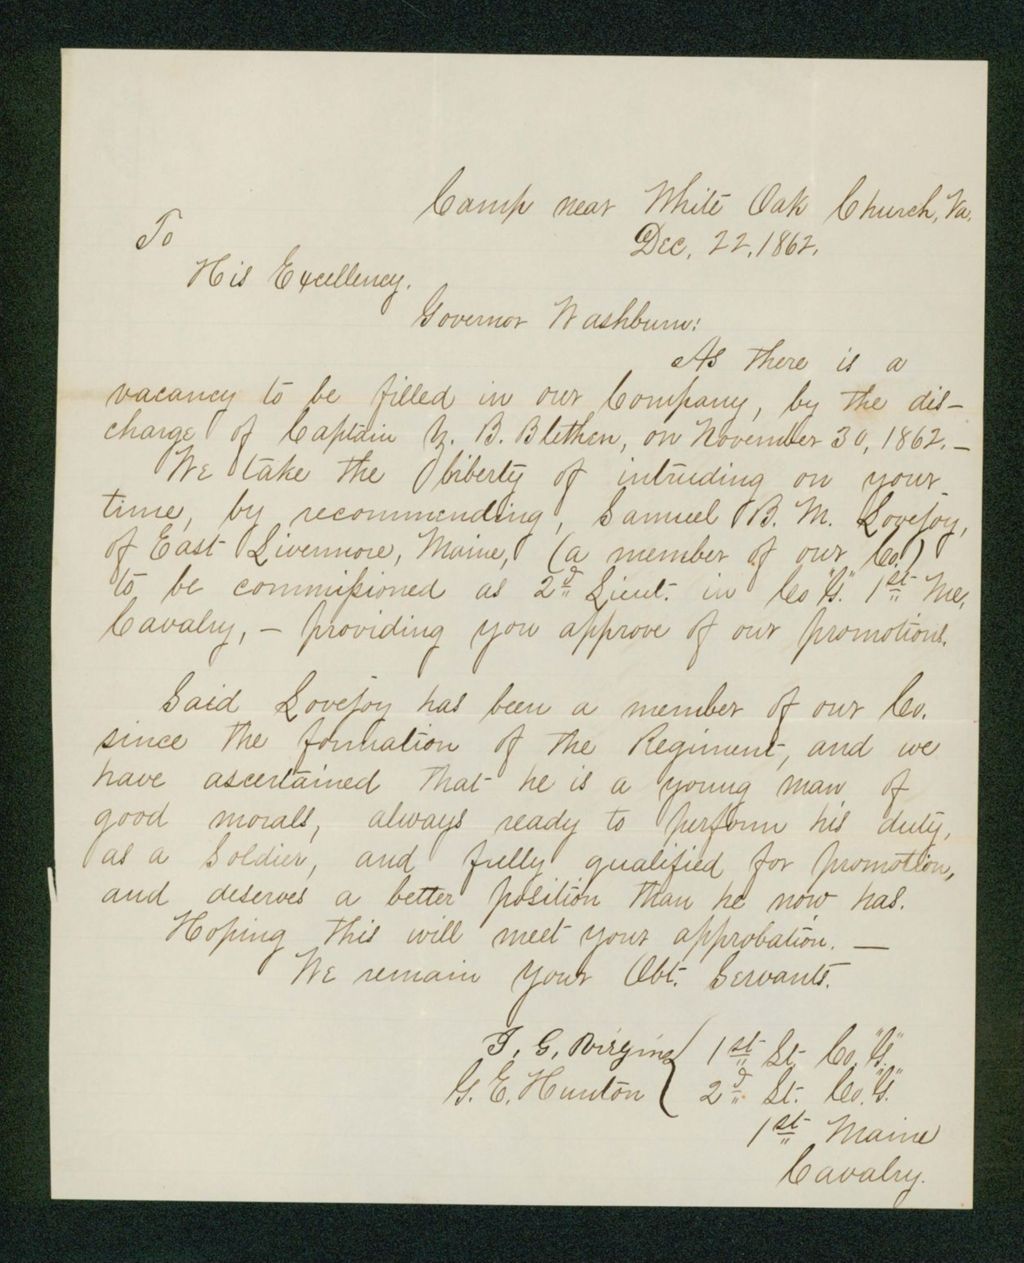 Camp near White Oak Church, Va.
Dec. 22, 1862.
To
His Excellency.
Governor Washburn:
As there is a
vacancy to be filled in our Company, by the dis-
charge of Captain Z. B. Blethen, on November 30, 1862. —
We take the liberty of intruding on your
time, by recommending, Samuel B. M. Lovejoy,
of East Livermore, Maine, (a member of our Co.)
to be commissioned as 2d Lieut. in Co "G." 1st Me,
Cavalry, — providing you approve of our promotions.
Said Lovejoy has been a member of our Co.
since the formation of the Regiment, and we
have ascertained that he is a young man of
good morals, always ready to perform his duty,
as a Soldier, and fully qualified for promotion,
and deserves a better position than he now has.
Hoping this will meet your approbation. —
We remain your Obt. Servants.
T. G. Virgin { 1st Lt. Co. "G."
G. E. Hunton { 2d Lt. Co. "G."
1st Maine
Cavalry.